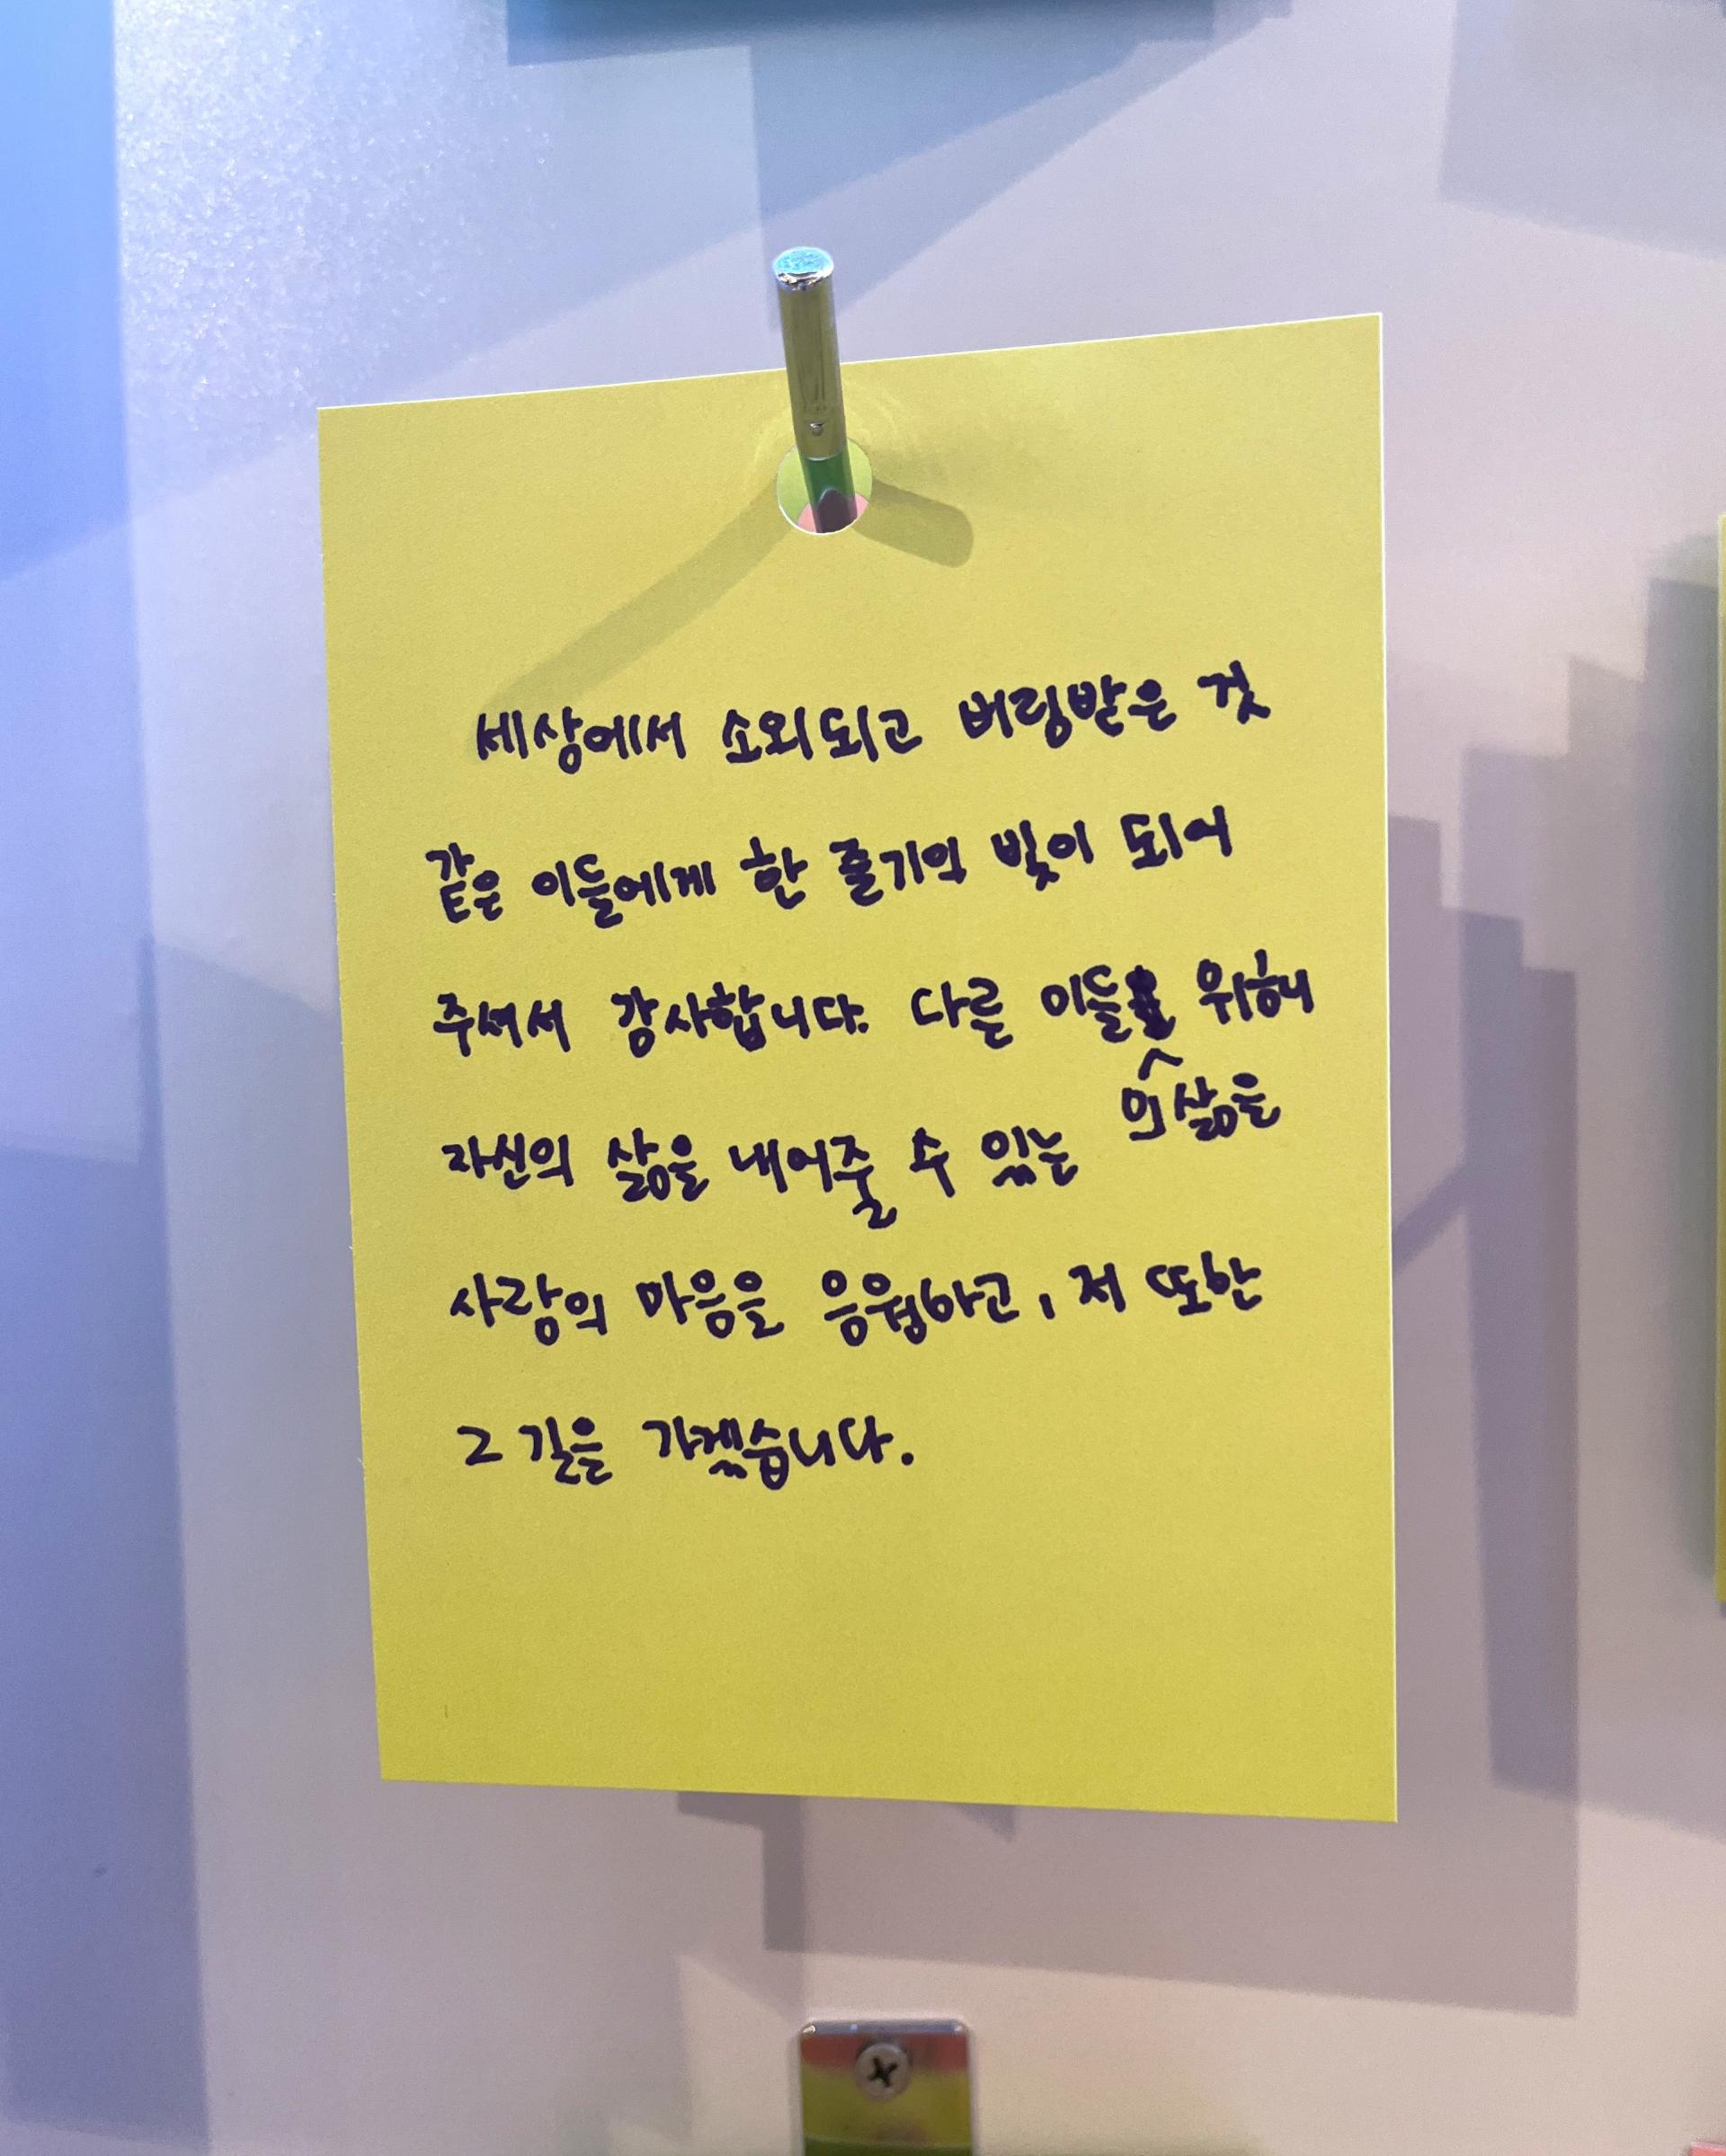 세상에서 소외되고 버림받은 것
같은 이들에게 한 줄기의 빛이 되어
주셔서 감사합니다. 다른 이들 위해
의 삶을
자신의 삶을 내어줄 수 있는
사랑의 마음을 응원하고, 저 또한
그 길을 가겠습니다.